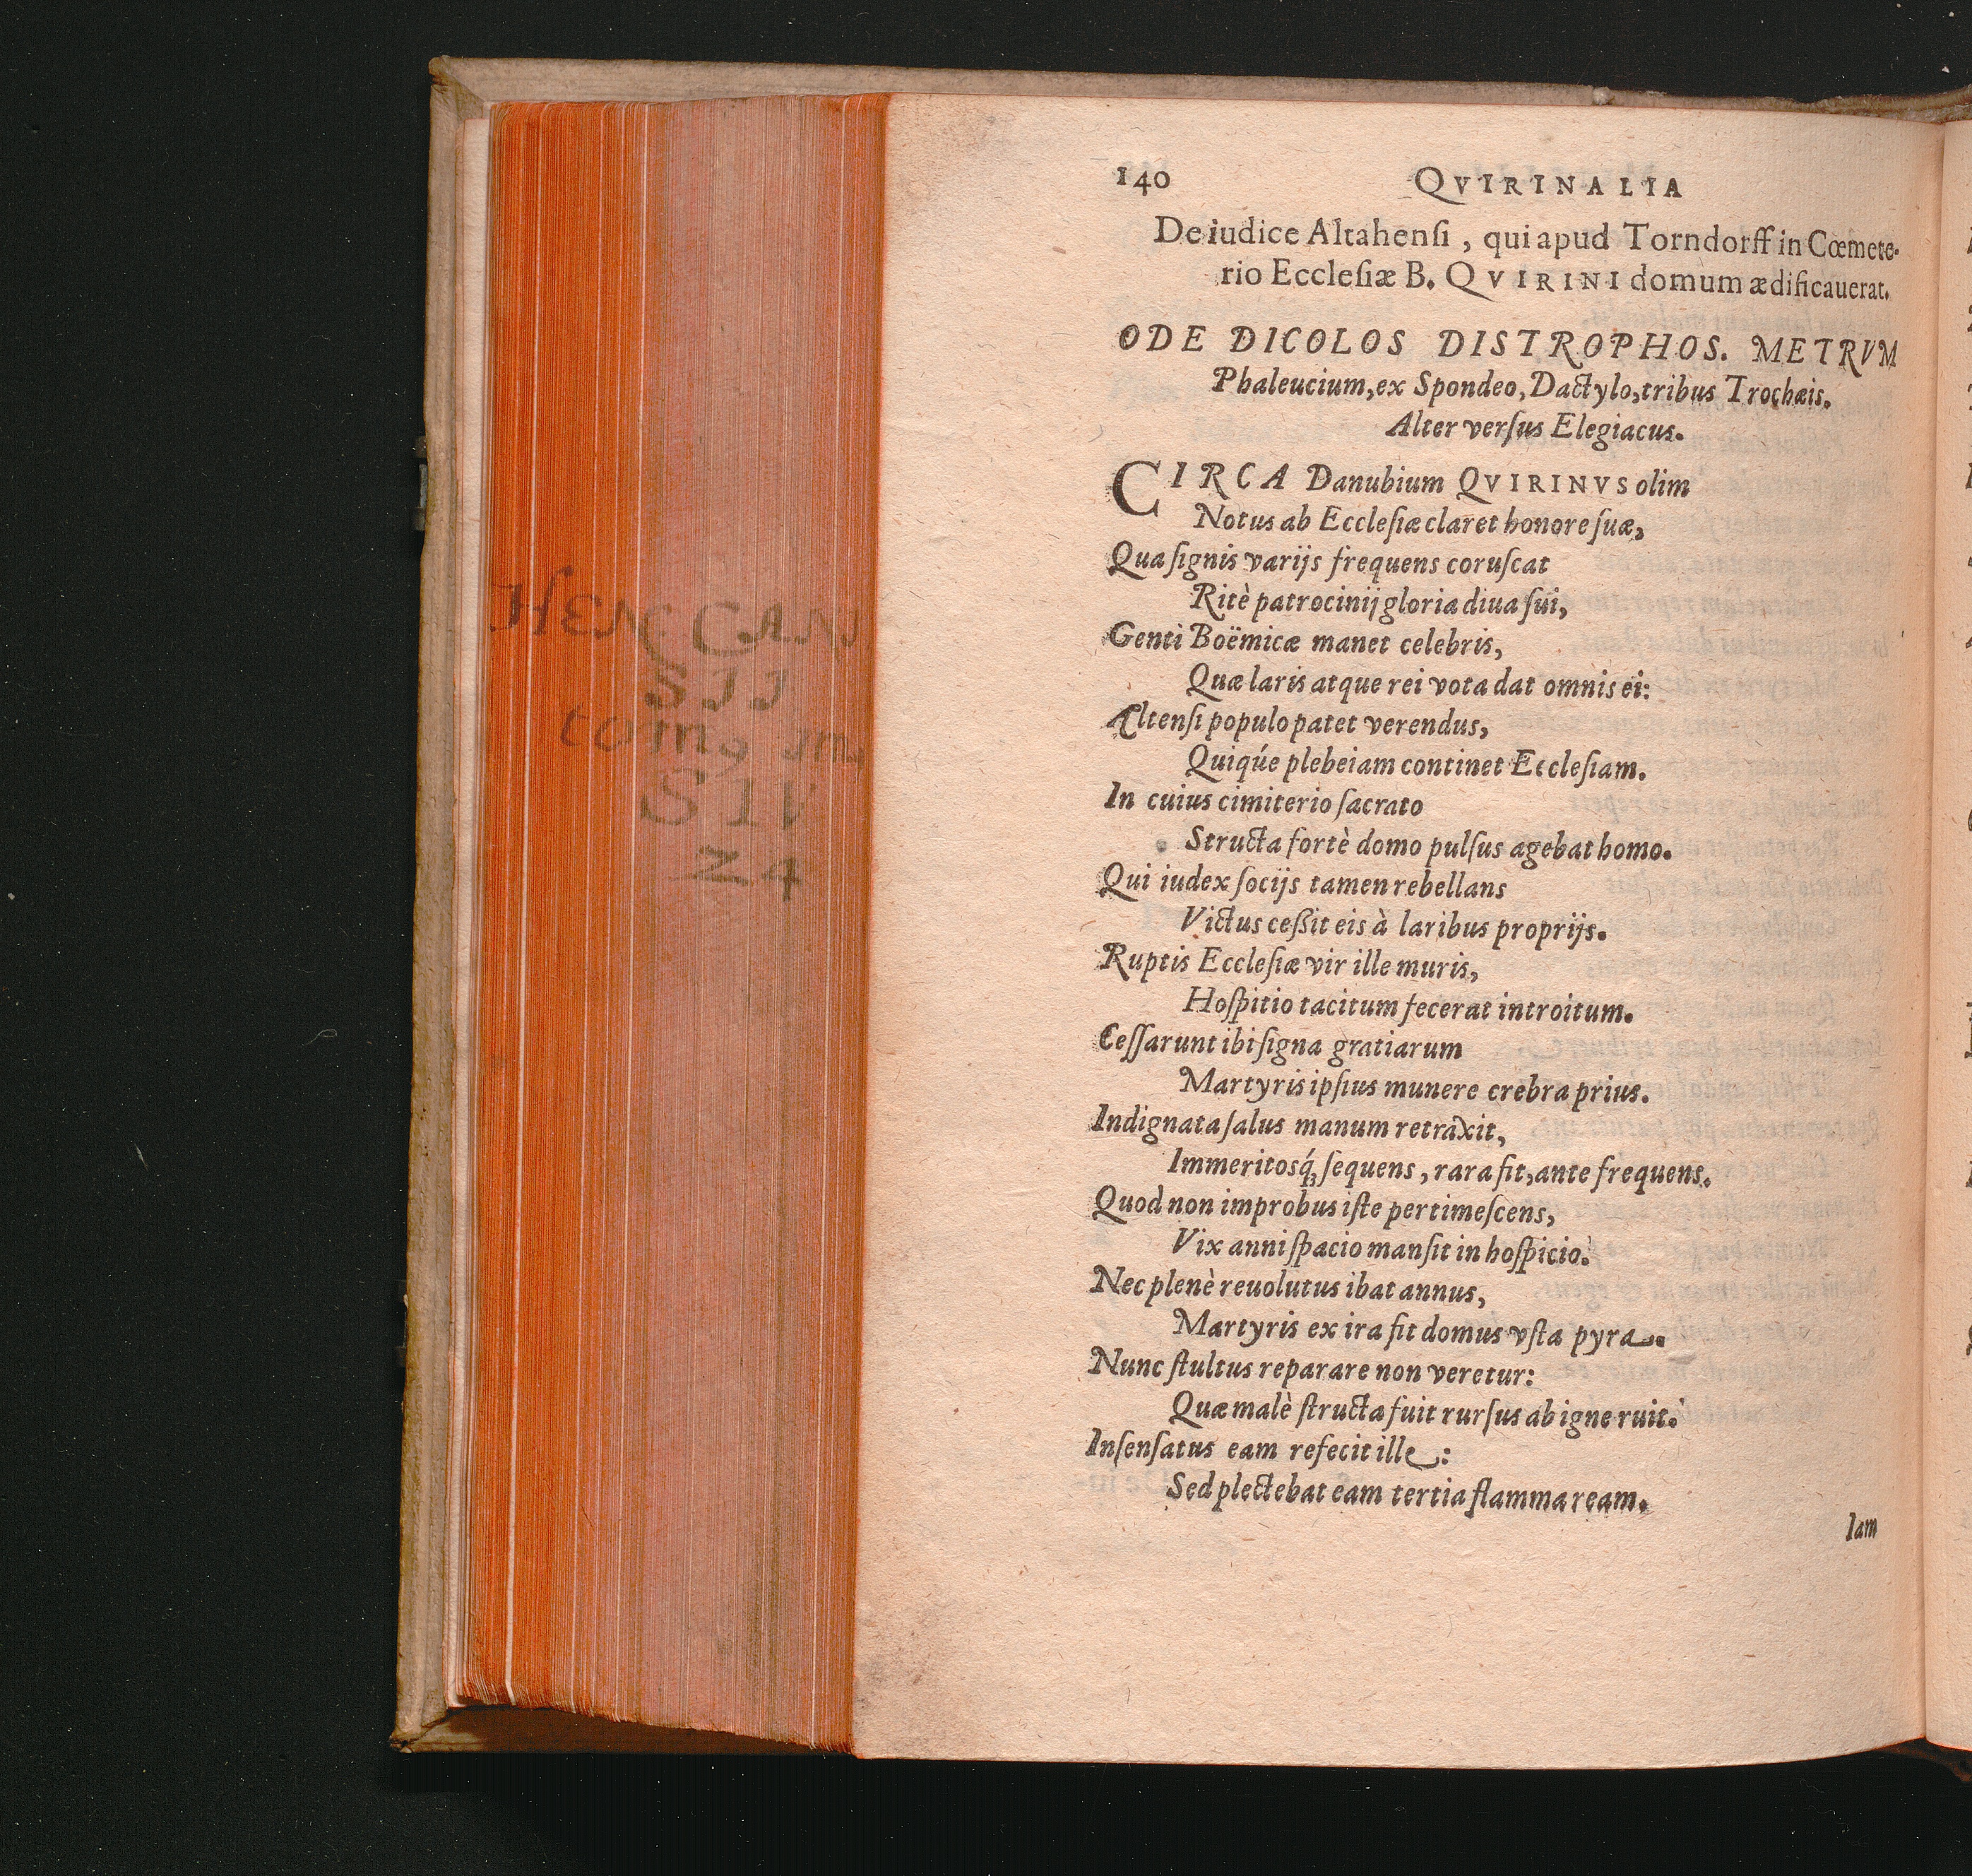 140 QVIRINALIA
De iudice Altahenſi, qui apud Torndorff in Cœmete-
rio Eccleſiæ B. QVIRINI domum ædificauerat.
ODE DICOLOS DISTROPHOS. METRVM
Phaleucium, ex Spondeo, Dactylo, tribus Trochæis.
Alter verſus Elegiacus.
CIRCA Danubium QVIRINVS olim
Notus ab Eccleſiæ claret honore ſuæ,
Qua ſignis varijs frequens coruſcat
Ritè patrocinij gloria diua ſui,
Genti Boëmicæ manet celebris,
Quæ laris atque rei vota dat omnis ei:
Altenſi populo patet verendus,
Quiq́ue plebeiam continet Eccleſiam.
In cuius cimiterio ſacrato
Structa fortè domo pulſus agebat homo.
Qui iudex ſocijs tamen rebellans
Victus ceßit eis à laribus proprijs.
Ruptis Eccleſiæ vir ille muris,
Hoſpitio tacitum fecerat introitum.
Ceſſarunt ibi ſigna gratiarum
Martyris ipſius munere crebra prius.
Indignata ſalus manum retraxit,
Immeritosq́ꝫ ſequens, rara fit, ante frequens.
Quod non improbus iſte pertimeſcens,
Vix anni ſpacio manſit in hoſpicio:
Nec plenè reuolutus ibat annus,
Martyris ex ira fit domus vſta pyra.
Nunc ſtultus reparare non veretur:
Quæ malè ſtructa fuit rurſus ab igne ruit:
Inſenſatus eam refecit ille:
Sed plectebat eam tertia flamma ream.
Iam
HEN CAN
SII
tomg
SIV
Z4